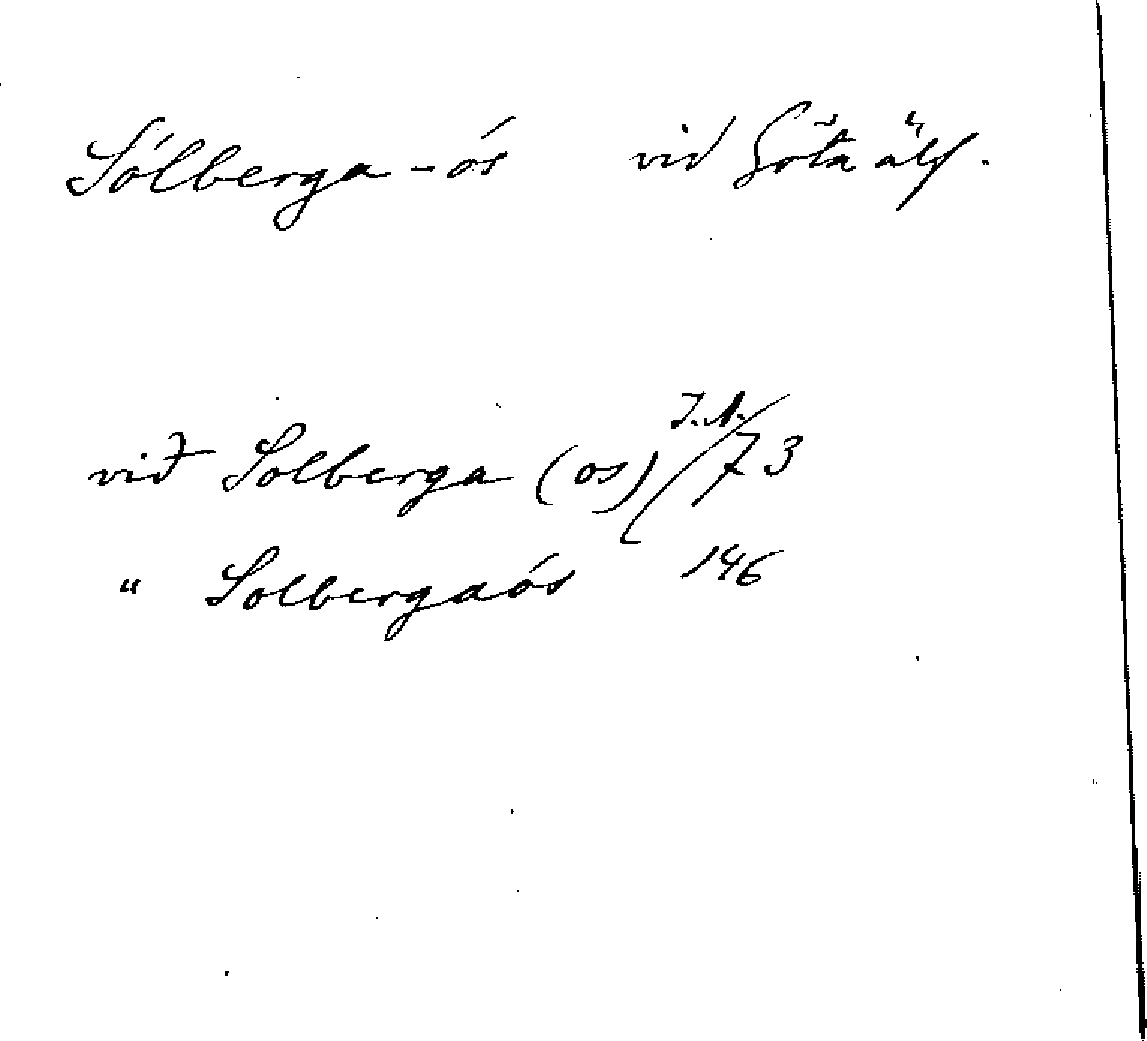 Sólberga-ós við Göta älf.
við Solberga (os) J.A. 73
" Solbergaós 146